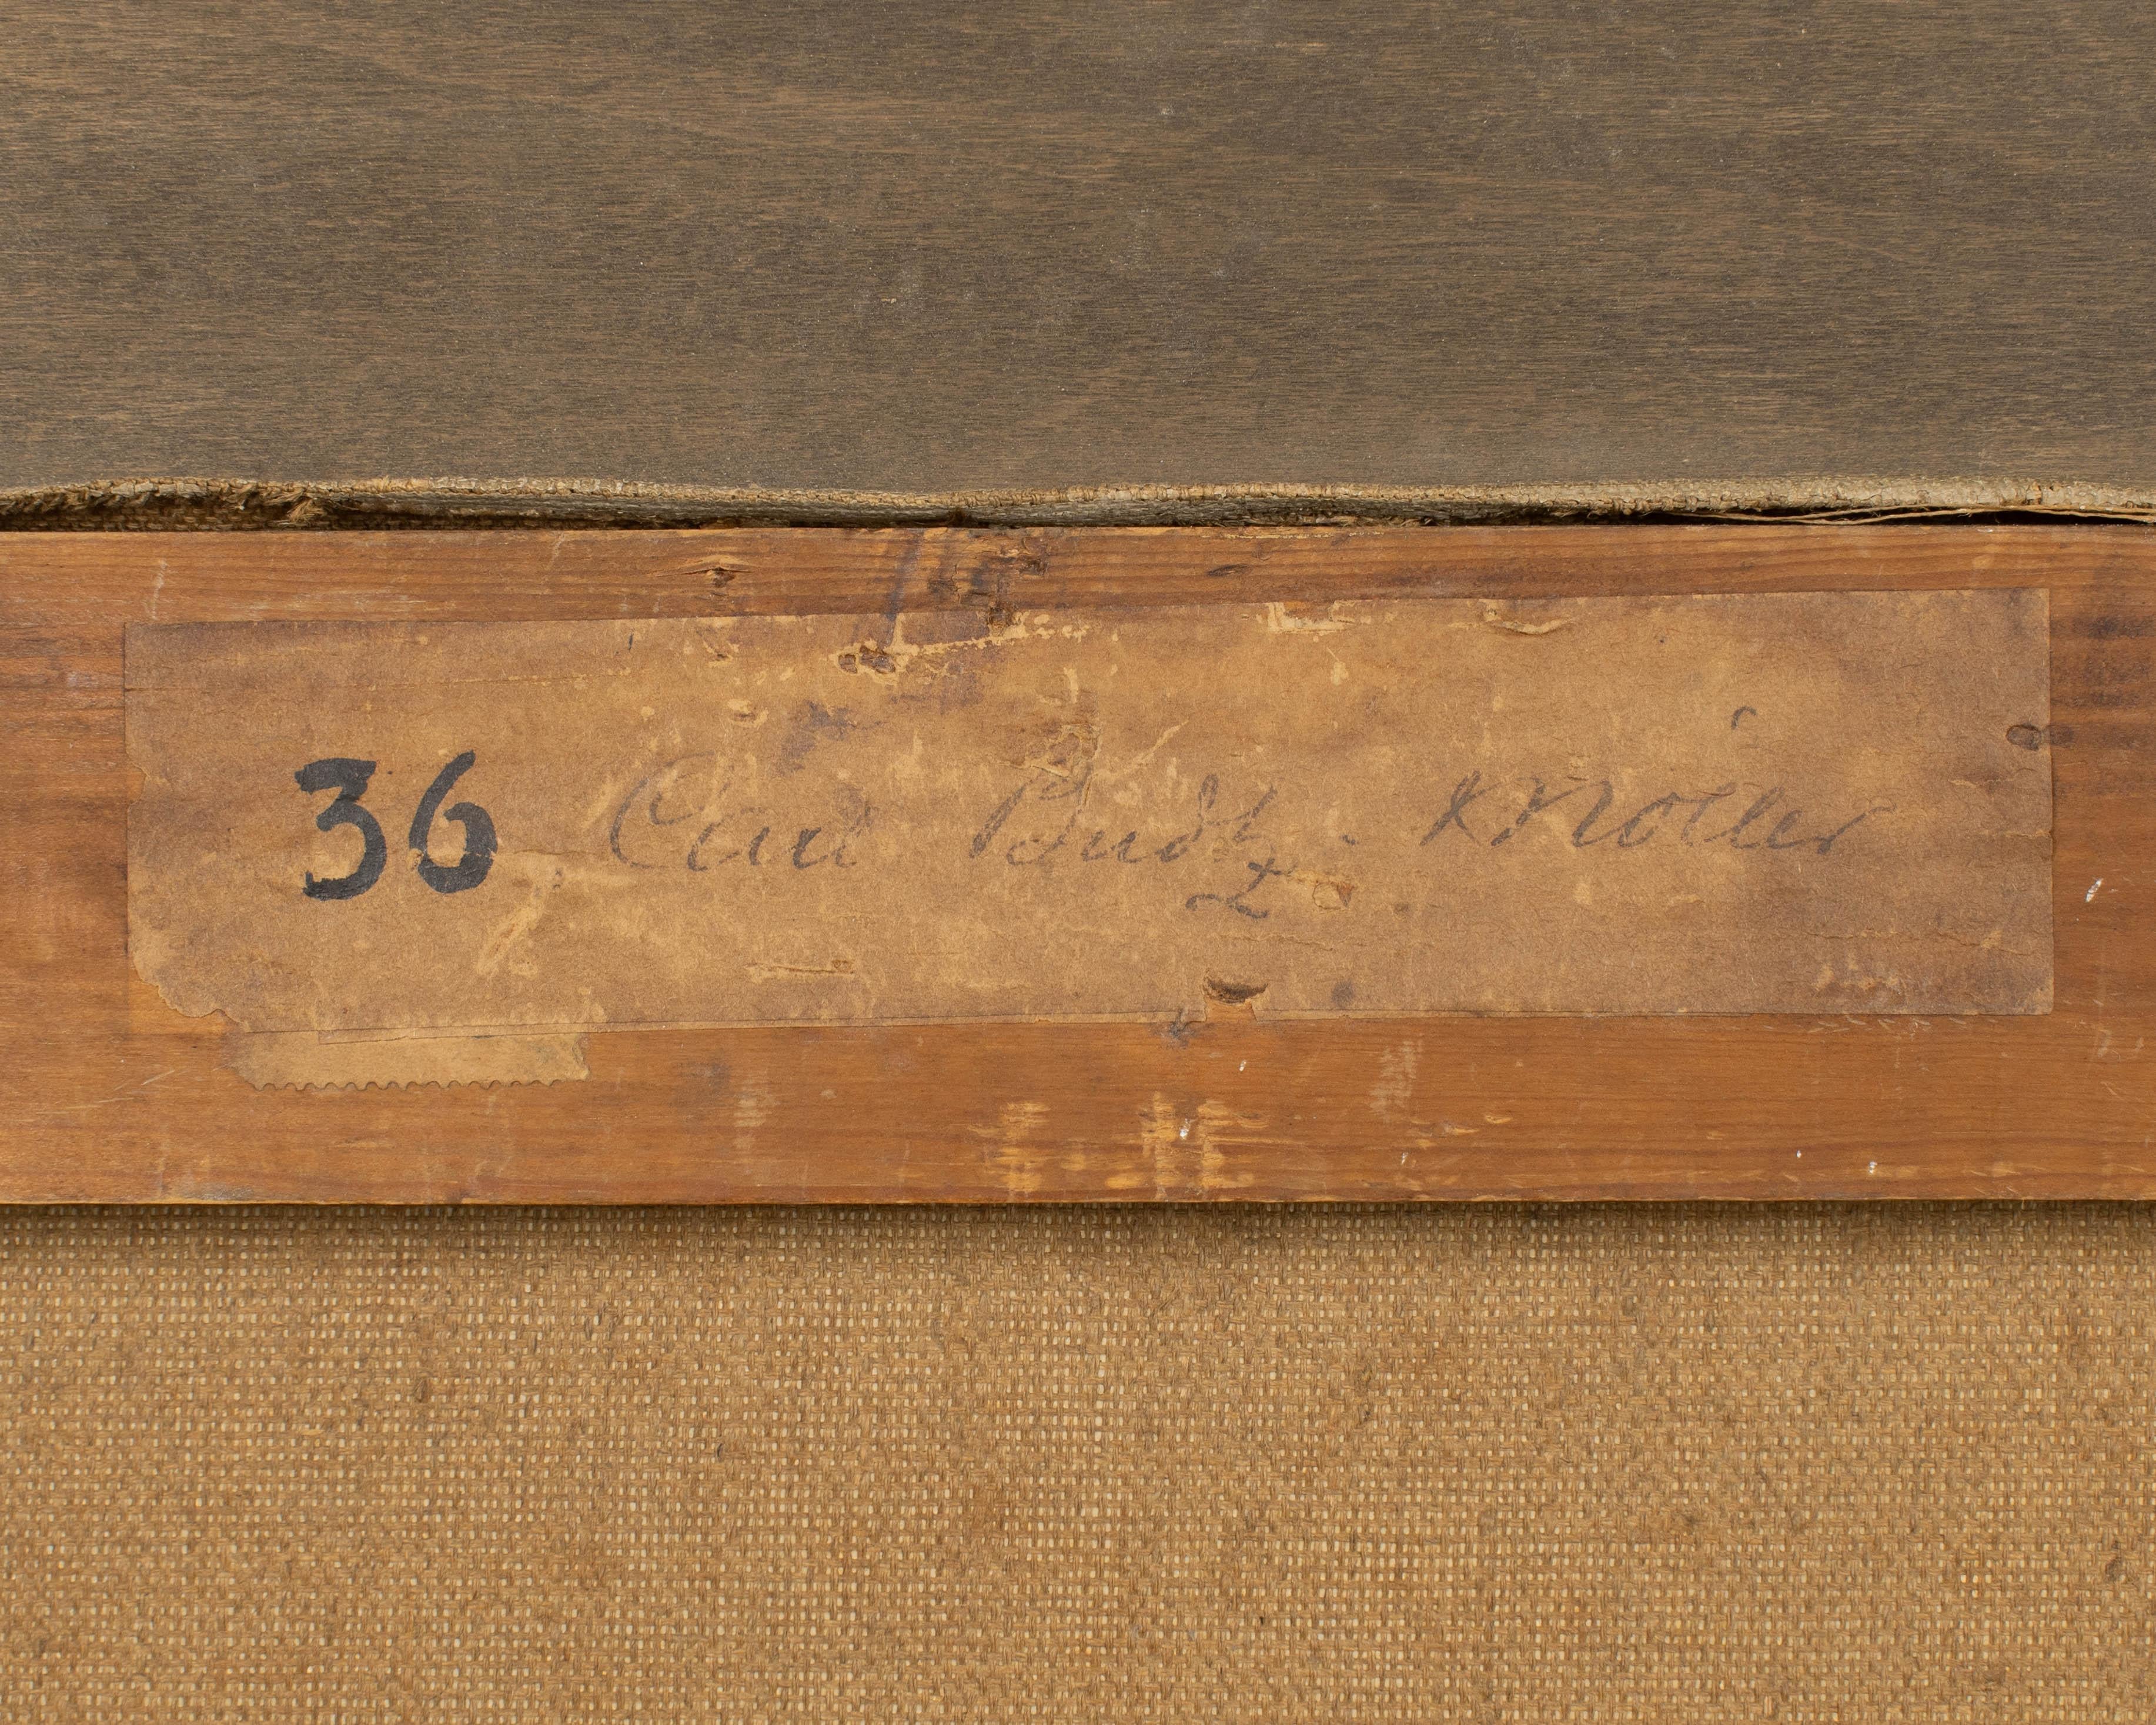 36 Carl Budtz - Móller